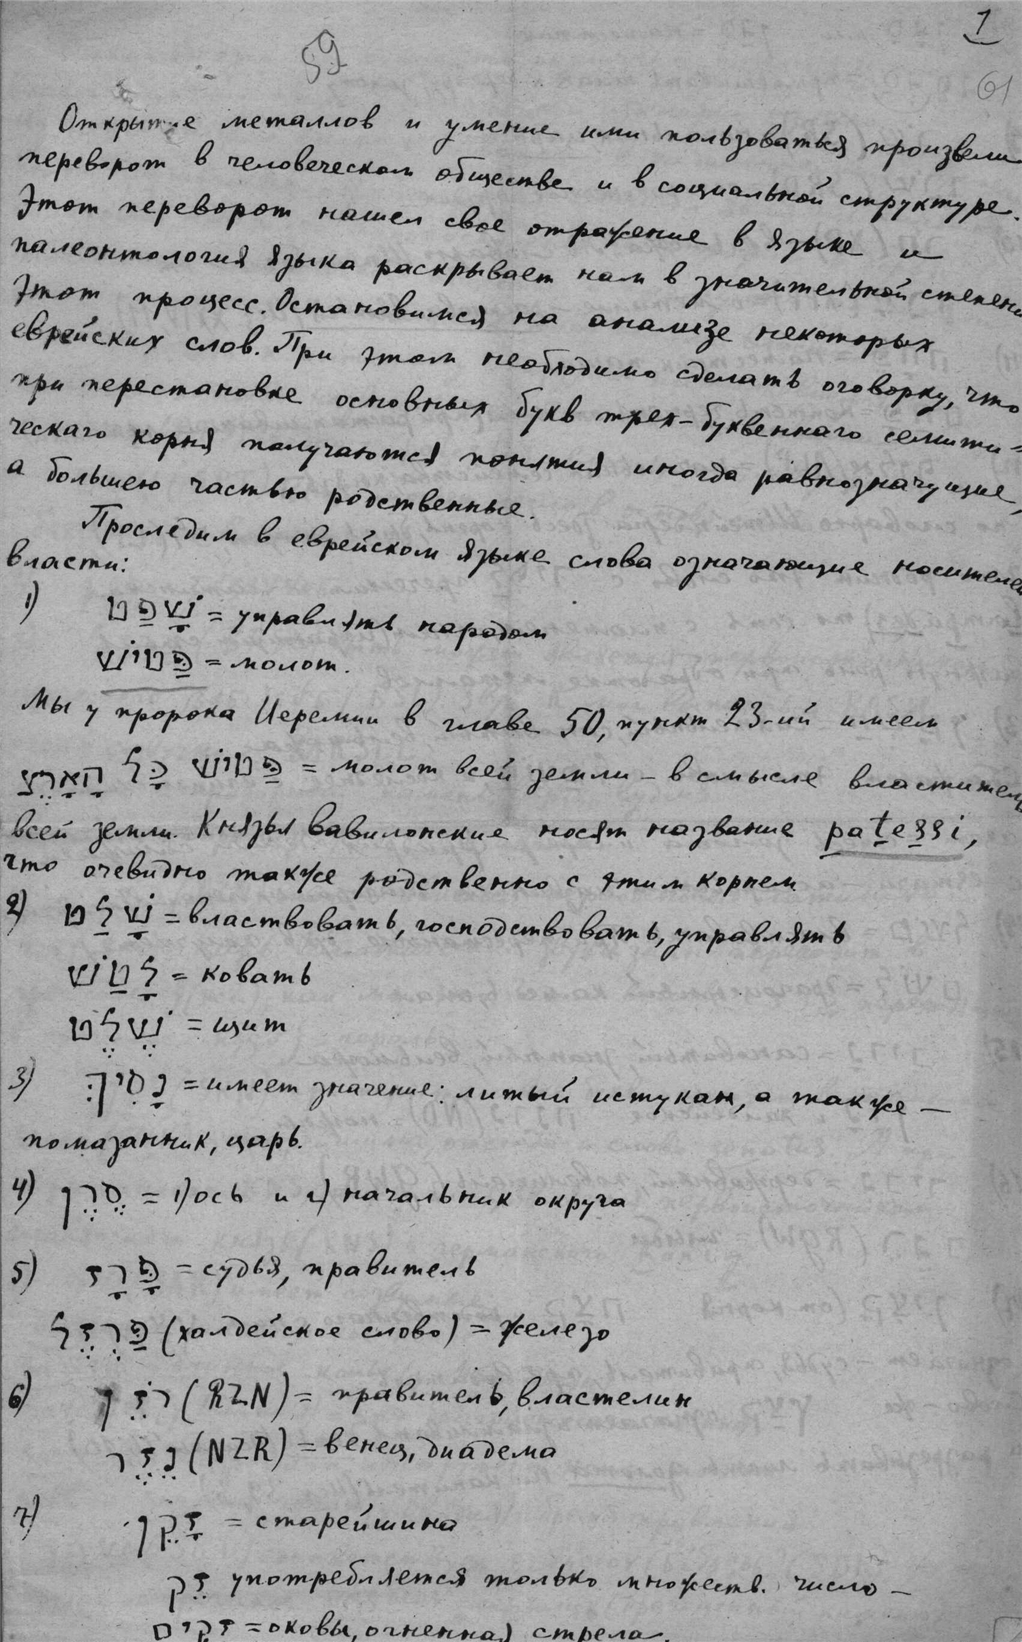 1
59
61
Открытие металлов и умение ими пользоваться произвели
переворот в человеческом обществе и в социальной структуре.
Этот переворот нашел свое отражение в языке и
палеонтология языка раскрывает нам в значительной степени
этот процесс. Остановимся на анализе некоторых
еврейских слов. При этом необходимо сделать оговорку, что
при перестановке основных букв трех-буквеннаго семити-
ческаго корня получаются понятия иногда равнозначущие,
а большею частью родственные.
Проследим в еврейском языке слова означающие носителей
власти:
1) שָׁפַּט = управлять народом
פַּטִישׁ = молот.
Мы у пророка Иеремии в главе 50, пункт 23-ий имеем
פַּטִישׁ כָּל הָאָרֶץ = молот всей земли – в смысле властитель
всей земли. Князья вавилонские носят название patessi,
что очевидно также родственно с этим корнем
2) שָׁלַט = властвовать, господствовать, управлять
לָטַשׁ = ковать
שֶׁלֶט = щит
3) נָסִיךְ = имеет значение: литый истукан, а также –
помазанник, царь.
4) סֶרֶן = 1) ось и 2) начальник округа
5) פָּרָז = судья, правитель
פַּרְזֶל (халдейское слово) = железо
6) רֹזֵן (RZN) = правитель, властелин
נֵזֶר (NZR) = венец, диадема
7) זָקֵן = старейшина
זֵק употребляется только множеств. число –
זִקִים = оковы, огненная стрела.